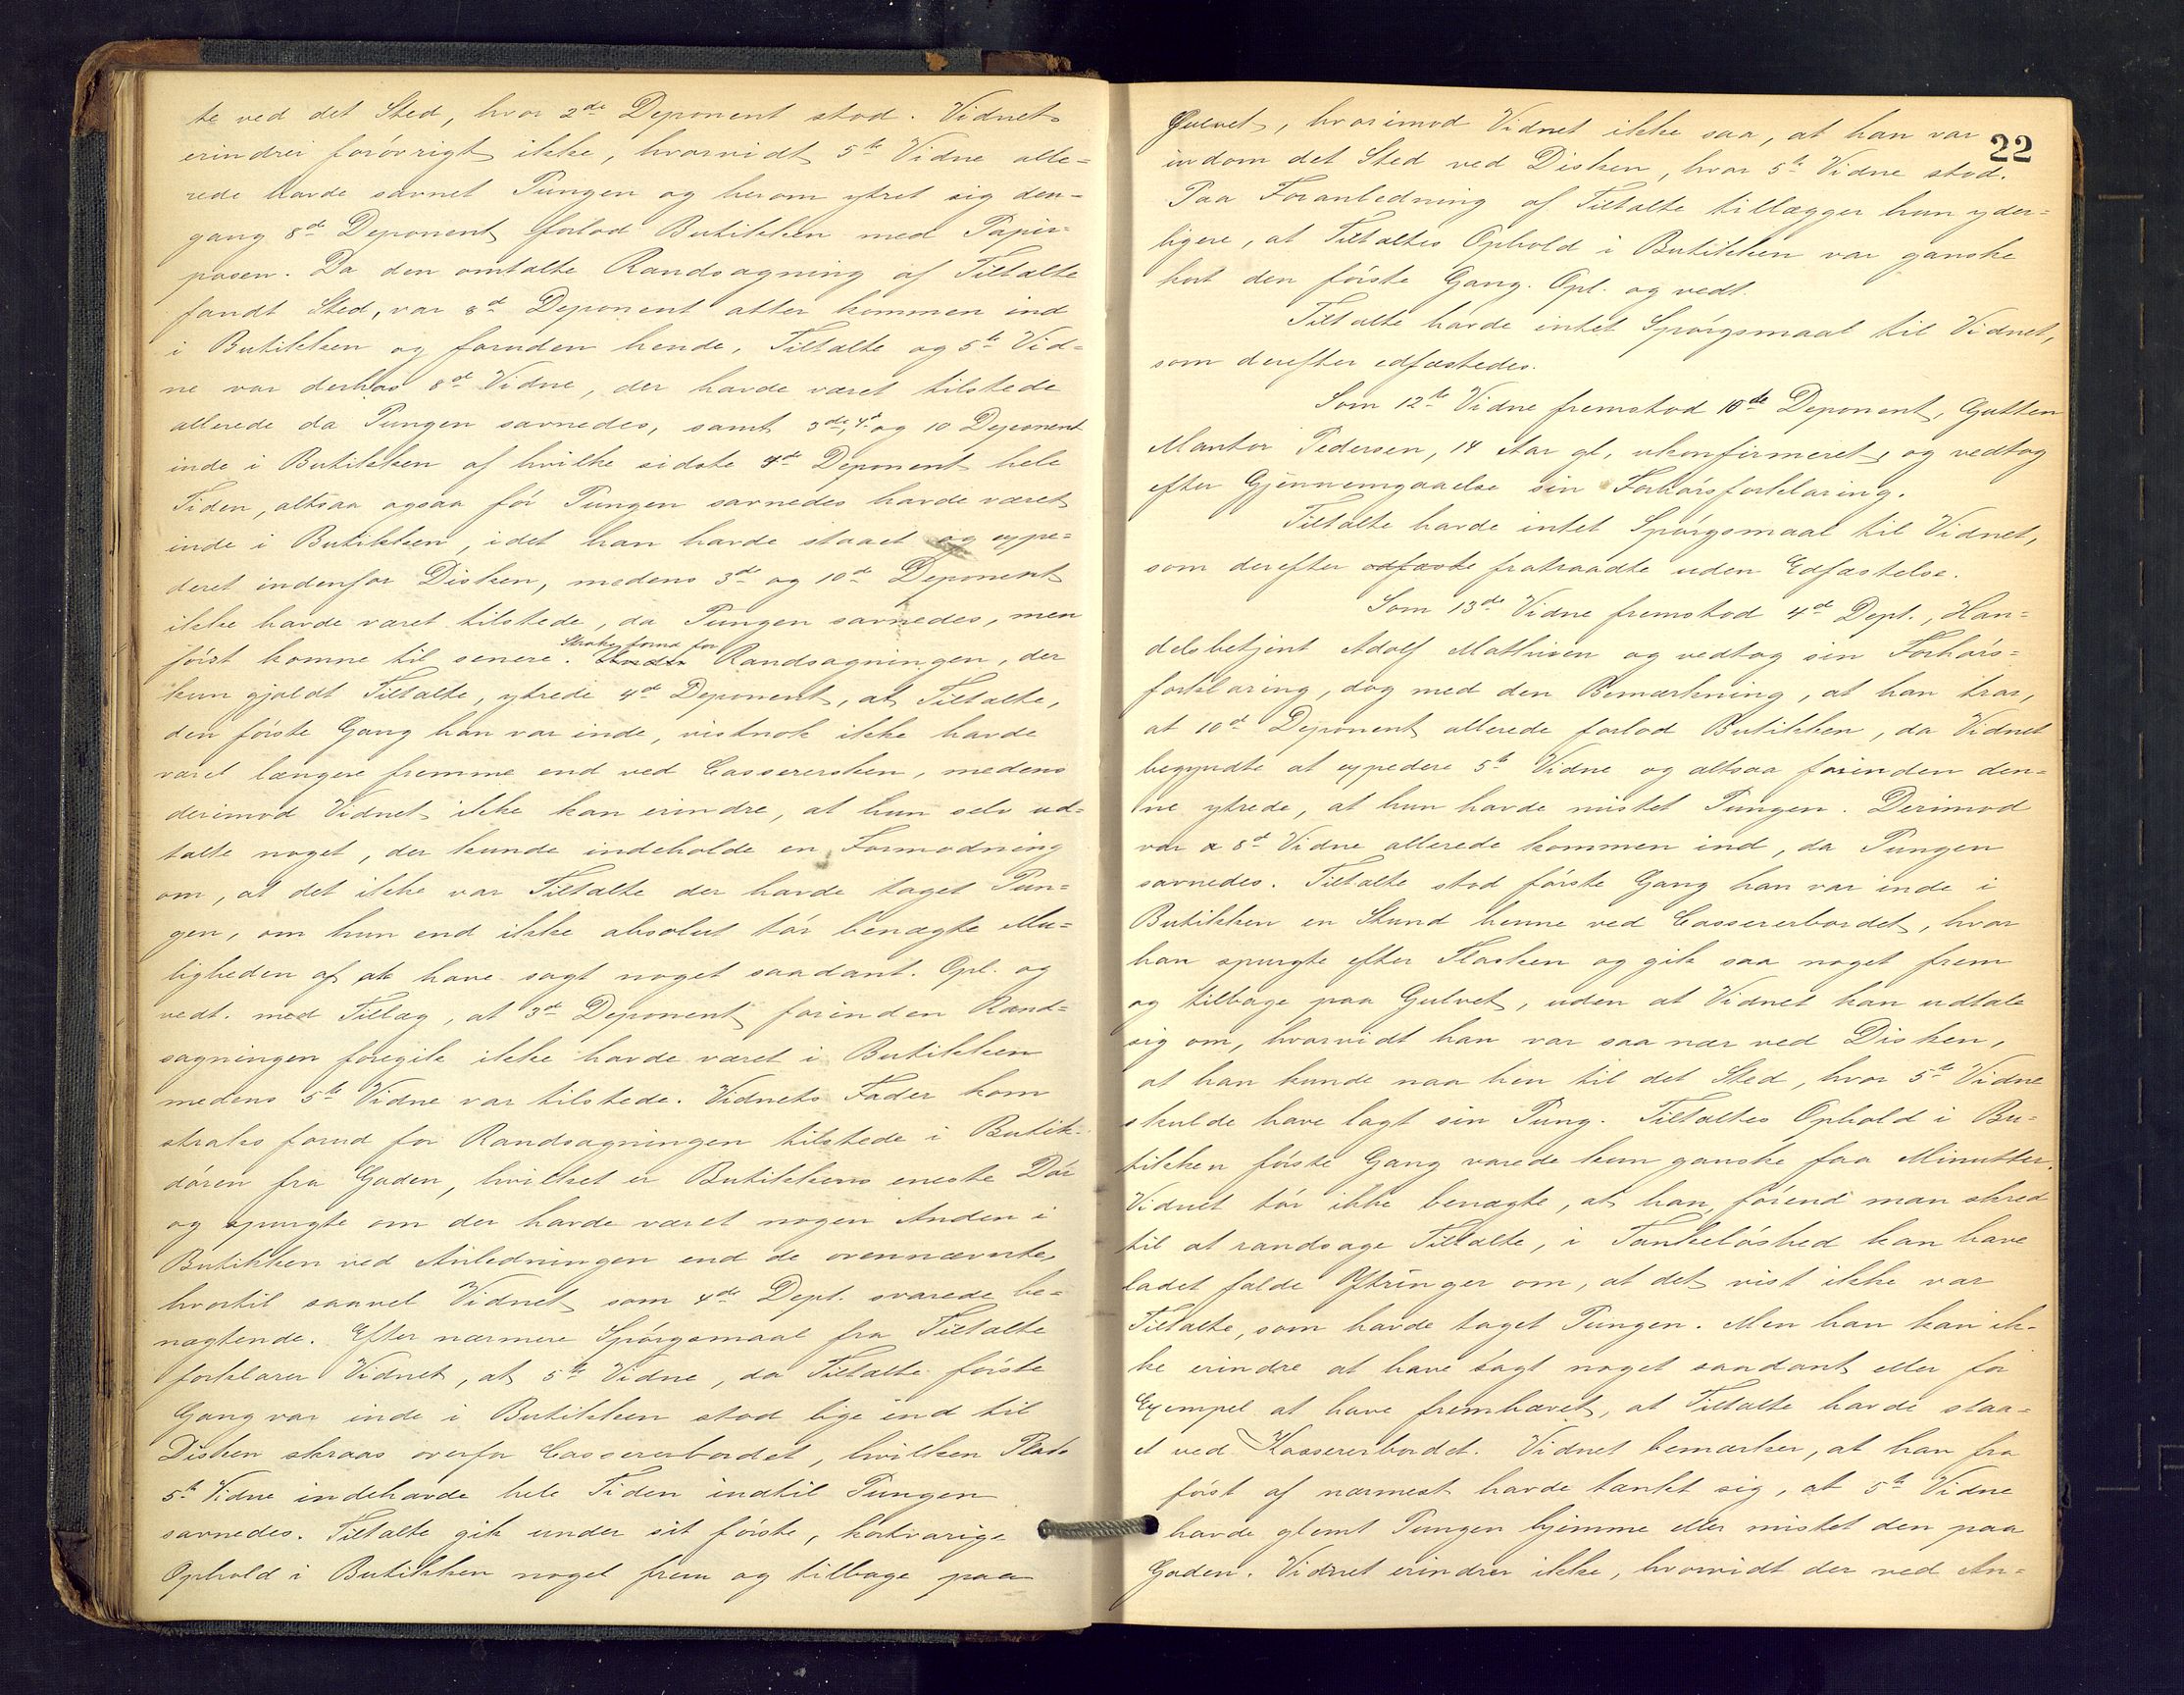 te ved det Sted, hvor 2de Deponent stod. Vidnet
erindrer forøvrigt ikke, hvorvidt 5te Vidne alle=
rede havde savnet Pungen og herom ytret sig den=
gang 8de Deponent forlod Butikken med Papir=
posen. Da den omtalte Randsagning af Tiltalte
fandt Sted, var 8de Deponent atter kommen ind
i Butikken og foruden hende, Tiltalte og 5te Vid=
ne var derhos 8de Vidne, der havde været tilstede
allerede da Pungen savnedes, samt 3die, 4de og 10 Deponent
inde i Butikken af hvilke sidste 4de Deponent hele
Tiden, altsaa ogsaa før Pungen savnedes havde været
inde i Butikken, idet han havde staaet og expe=
deret indenfor Disken, medens 3de og 10de Deponent
ikke havde været tilstede, da Pungen savnedes, men
først komne til senere. Straks forud for Randsagningen, der
kun gjaldt Tiltalte, ytrede 4de Deponent, at Tiltalte,
den første Gang han var inde, vistnok ikke havde
været længere fremme end ved Casserersken, medens
derimod Vidnet ikke kan erindre, at hun selv ud=
talte noget, der kunde indeholde en Formodning
om, at det ikke var Tiltalte der havde taget Pun=
gen, om hun end ikke absolut tør benægte Mu=
ligheden af at have sagt noget saadant. Opl. og
vedt. med Tillæg, at 3de Deponent forinden Rand=
sagningen foregik ikke havde været i Butikken
medens 5te Vidne var tilstede. Vidnets Fader kom
straks forud for Randsagningen tilstede i Butik=
døren fra Gaden, hvilket er Butikkens eneste Dør
og spurgte om der havde været nogen Anden i
Butikken ved Anledningen end de ovennævnte,
hvortil saavel Vidnet som 4de Dept. svarede be=
nægtende. Efter nærmere Spørgsmaal fra Tiltalte
forklarer Vidnet, at 5te Vidne, da Tiltalte første
Gang var inde i Butikken stod lige ind til
Disken skraas overfor Cassererbordet, hvilken Plads
5te Vidne indehavde hele Tiden indtil Pungen
savnedes. Tiltalte gik under sit første, kortvarige
Ophold i Butikken noget frem og tilbage paa
22
Gulvet, hvorimod Vidnet ikke saa, at han var
indom det Sted ved Disken, hvor 5te Vidne stod.
Paa Foranledning af Tiltalte tillægger hun yder=
ligere, at Tiltaltes Ophold i Butikken var ganske
kort den første Gang. Opl. og vedt.
Tiltalte havde intet Spørgsmaal til Vidnet,
som derefter edfæstedes.
Som 12te Vidne fremstod 10de Deponent, Gutten
Mantor Pedersen, 14 Aar gl, ukonfirmeret, og vedtog
efter Gjennemgaaelse sin Forhørsforklaring.
Tiltalte havde intet Spørgsmaal til Vidnet,
som derefter edfæste fratraadte uden Edfæstelse.
Som 13de Vidne fremstod 4de Dept., Han=
delsbetjent Adolf Mathisen og vedtog sin Forhørs=
forklaring, dog med den Bemærkning, at han tror,
at 10de Deponent allerede forlod Butikken, da Vidnet
begyndte at expedere 5te Vidne og altsaa forinden den=
ne ytrede, at hun havde mistet Pungen. Derimod
var 8de Vidne allerede kommen ind, da Pungen
savnedes. Tiltalte stod første Gang han var inde i
Butikken en Stund henne ved Cassererbordet, hvor
han spurgte efter Flasken og gik saa noget frem
og tilbage paa Gulvet, uden at Vidnet kan udtale
sig om, hvorvidt han var saa nær ved Disken,
at han kunde naa hen til det Sted, hvor 5te Vidne
skulde have lagt sin Pung. Tiltaltes Ophold i Bu=
tikken første Gang varede kun ganske faa Minutter.
Vidnet tør ikke benægte, at han, førend man skred
til at randsage Tiltalte, i Tankeløshed kan have
ladet falde Yttringer om, at det vist ikke var
Tiltalte, som havde taget Pungen. Men han kan ik=
ke erindre at have sagt noget saadant eller for
Exempel at have fremhævet, at Tiltalte havde staa=
et ved Kassererbordet. Vidnet bemærker, at han fra
først af nærmest havde tænkt sig, at 5te Vidne
havde glemt Pungen hjemme eller mistet den paa
Gaden. Vidnet erindrer ikke, hvorvidt der ved An=